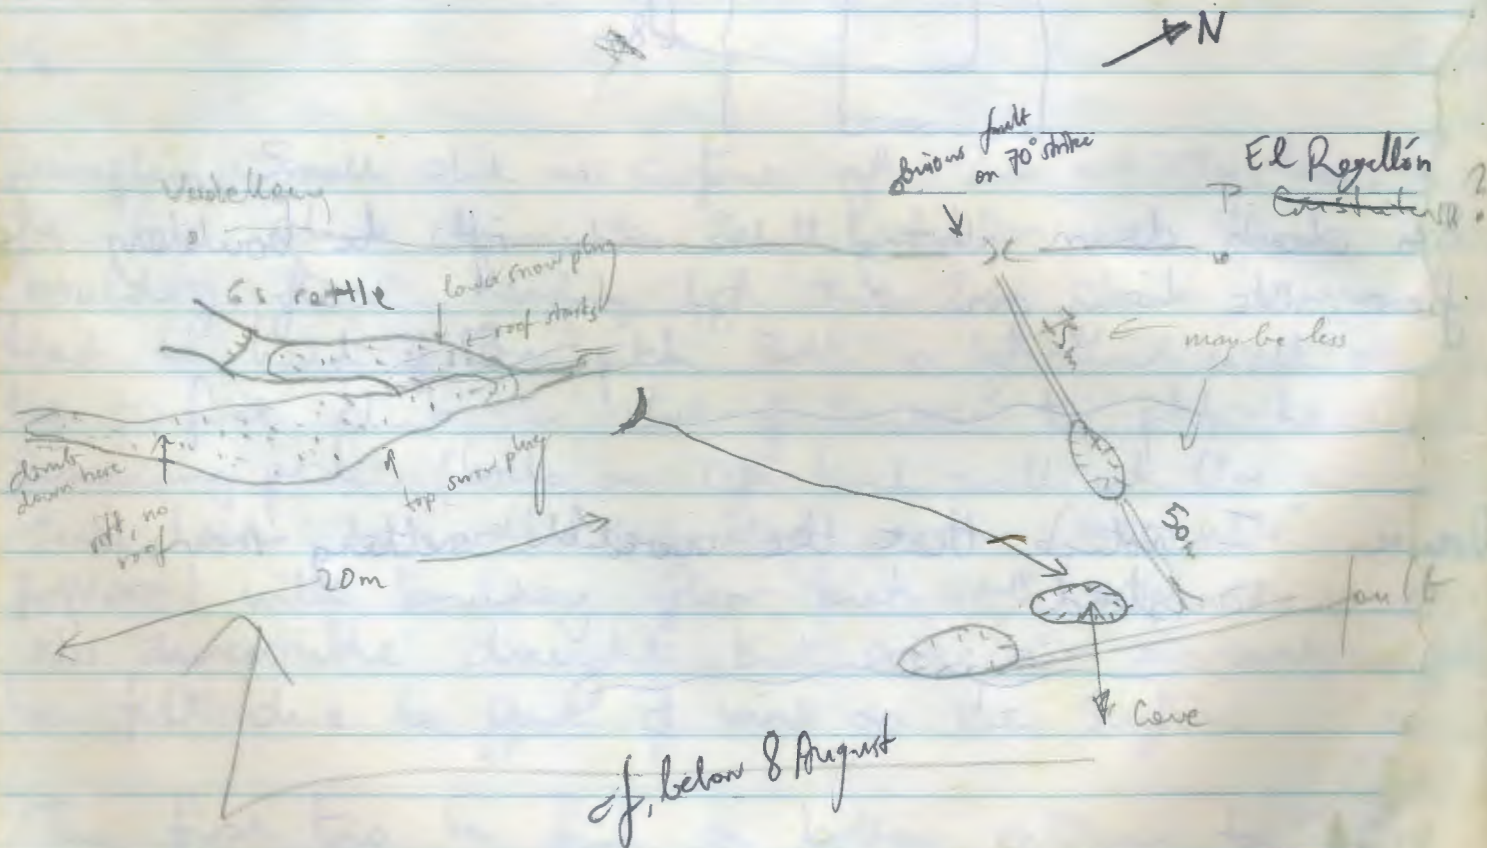 N
obvious fault
on 70° strike
El Regallón
P.
?
6s rattle
lower snow plug
roof starts
may be less
climb
down here
rift, no
roof
top snow plug
50
20m
fault
Cave
cf, below 8 August